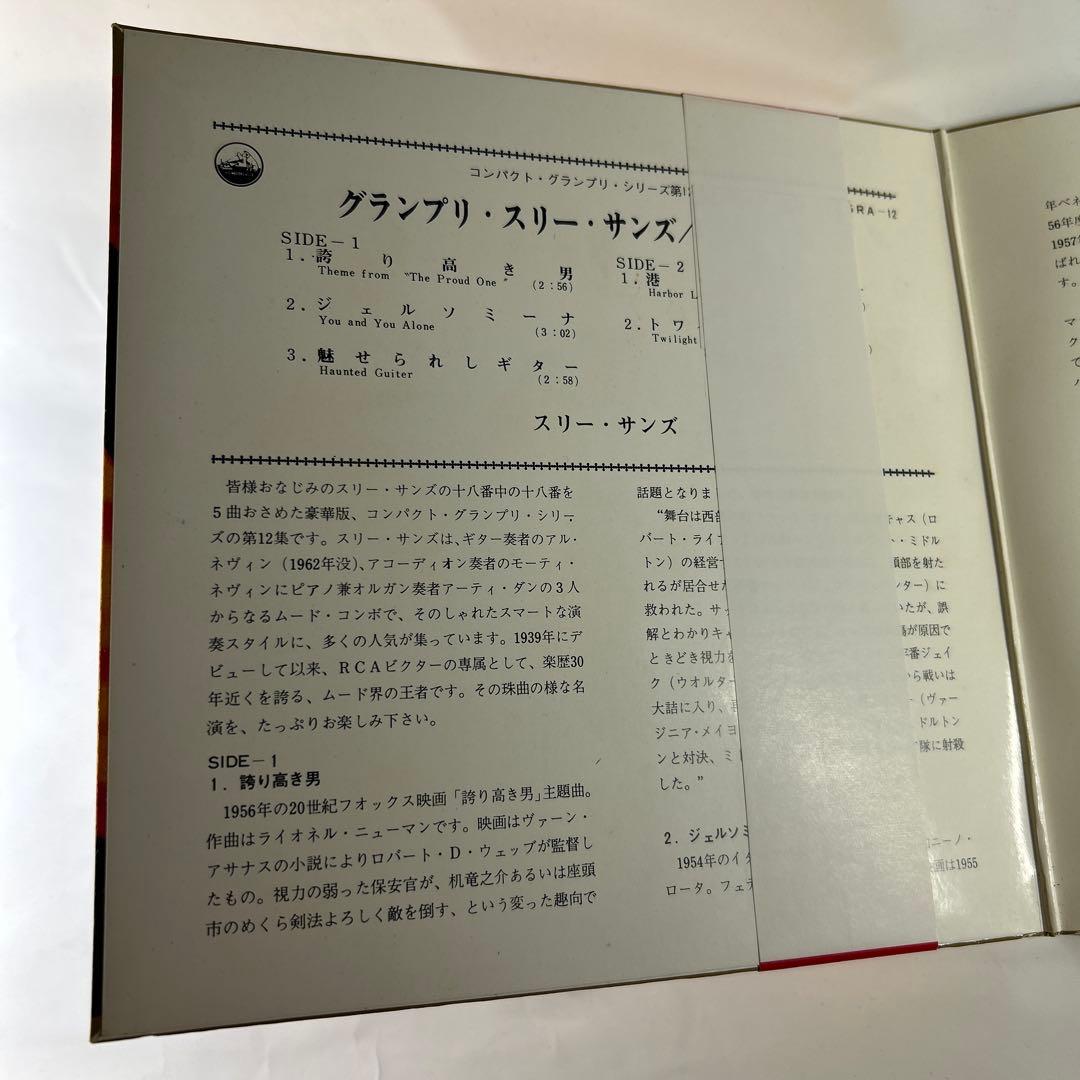 コンパクト・グランプリ・シリーズ第1
グランプリ・スリー・サンズ/
GRA-12
SIDE-1
1.誇り高き男
Theme from "The Proud One"
(2:56)
2.ジェルソミーナ
You and You Alone
(3:02)
3.魅せられしギター
Haunted Guiter
(2:58)
SIDE-2
1.港
Harbor L
2.トワ
Twilight
スリー・サンズ
皆様おなじみのスリー・サンズの十八番中の十八番を
5曲おさめた豪華版、コンパクト・グランプリ・シリー
ズの第12集です。スリー・サンズは、ギター奏者のアル・
ネヴィン(1962年没)、アコーディオン奏者のモーティ・
ネヴィンにピアノ兼オルガン奏者アーティ・ダンの3人
からなるムード・コンボで、そのしゃれたスマートな演
奏スタイルに、多くの人気が集っています。1939年にデ
ビューして以来、RCAビクターの専属として、楽歴30
年近くを誇る、ムード界の王者です。その珠曲の様な名
演を、たっぷりお楽しみ下さい。
SIDE-1
1. 誇り高き男
1956年の20世紀フオックス映画「誇り高き男」主題曲。
作曲はライオネル・ニューマンです。映画はヴァーン・
アサナスの小説によりロバート・D・ウェッブが監督し
たもの。視力の弱った保安官が、机竜之介あるいは座頭
市のめくら剣法よろしく敵を倒す、という変った趣向で
話題となりま
"舞台は西部 キャス(ロ
バート・ライフ ト・ミドル
トン)の経営 頭部を射た
れるが居合せた ンター)に
救われた。サッ いたが、誤
解とわかりキャ 傷が原因で
ときどき視力を 牢番ジェイ
ク(ウオルター から戦いは
大詰に入り、 (ヴァー
ジニア・メイヨ ドルトン
ンと対決、ミ 隊に射殺
した。"
2. ジェルソミ
1954年のイタ ニーノ・
ロータ。フェデ 画は1955
年ベネ
56年度
1957年
ばれ
す。
マ
ク
で